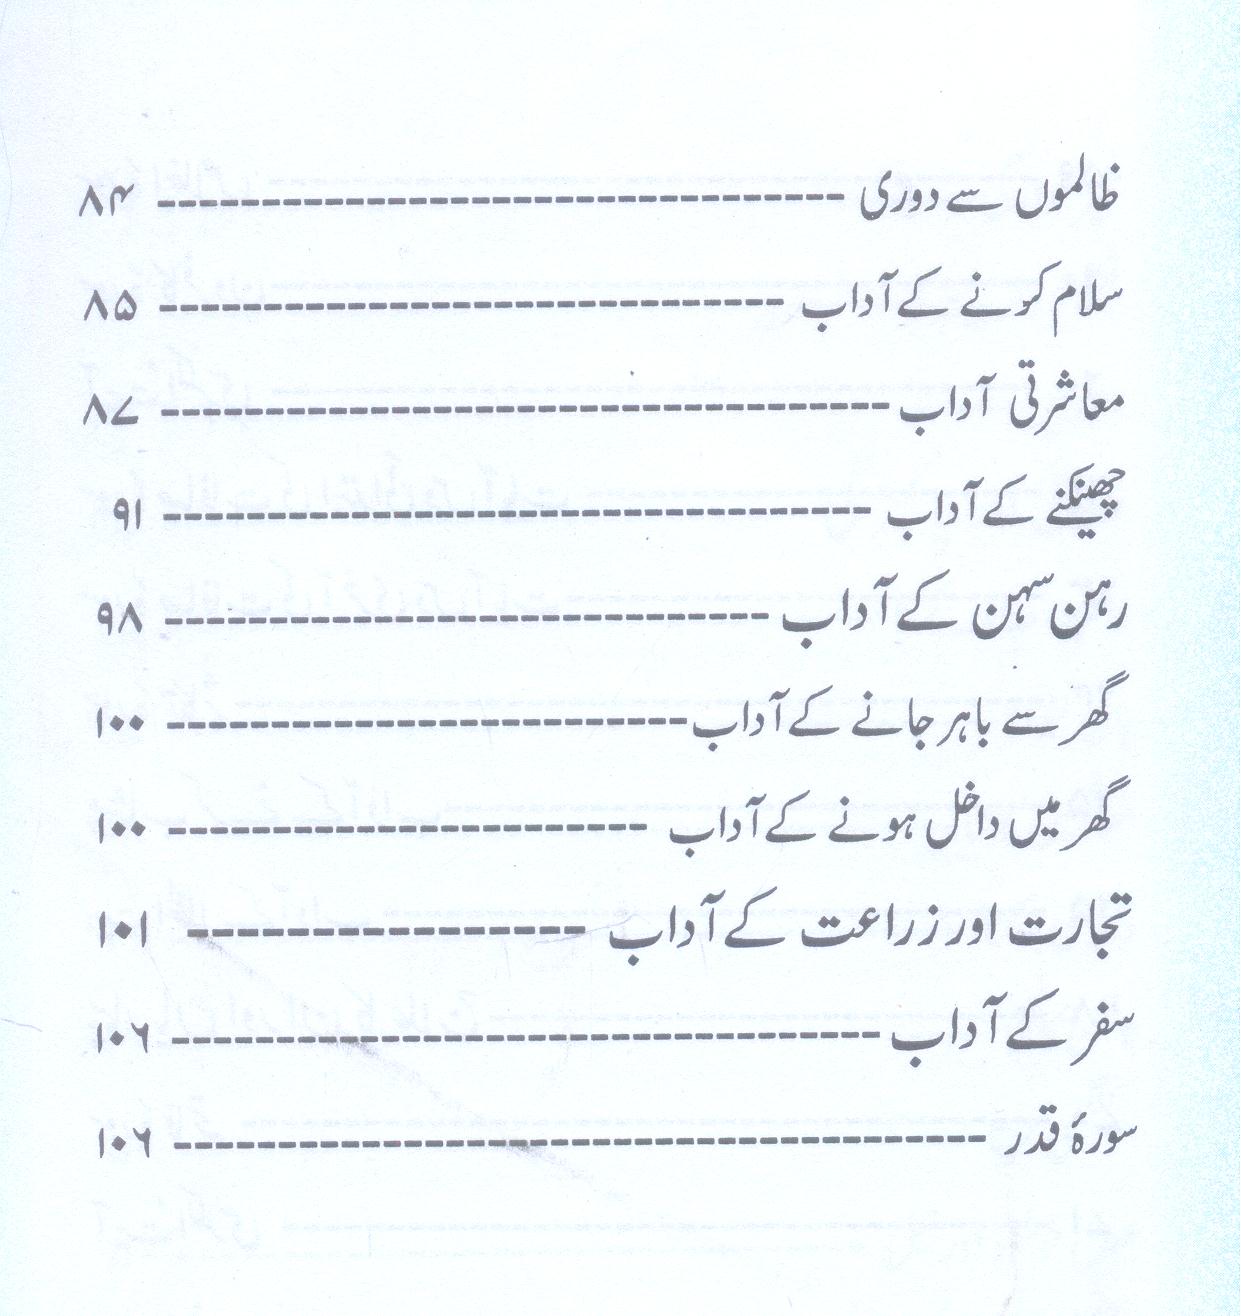 ظالموں سے دوری ---------------------------------- ۸۴
سلام کرنے کے آداب ------------------------------- ۸۵
معاشرتی آداب ------------------------------------ ۸۷
چھینکنے کے آداب ----------------------------------- ۹۱
رہن سہن کے آداب ------------------------------ ۹۸
گھر سے باہر جانے کے آداب -------------------------- ۱۰۰
گھر میں داخل ہونے کے آداب ------------------------ ۱۰۰
تجارت اور زراعت کے آداب ----------------- ۱۰۱
سفر کے آداب ----------------------------------- ۱۰۶
سورۂ قدر ---------------------------------------- ۱۰۶